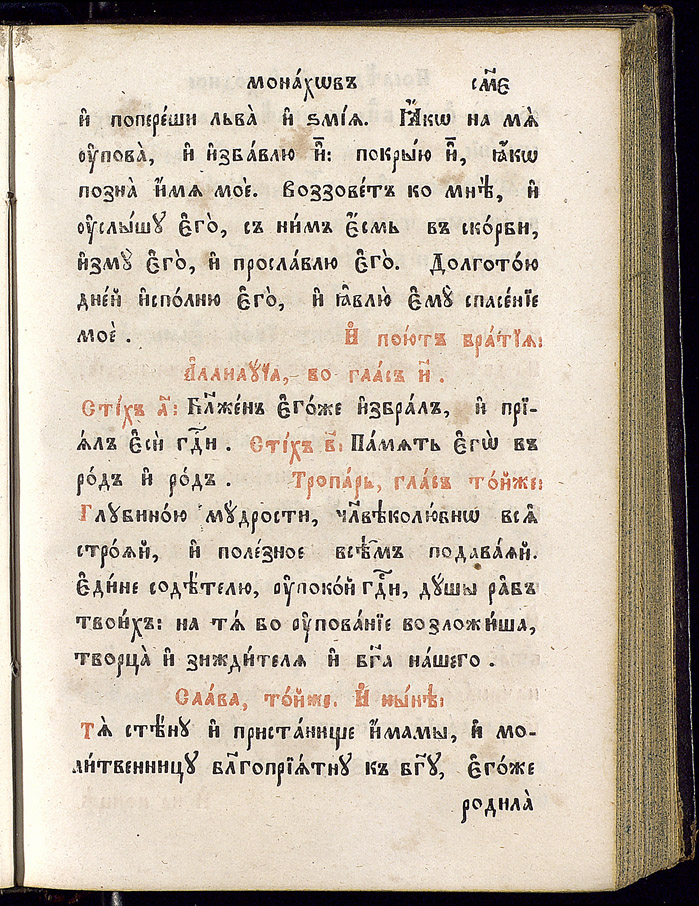 мона́хѡвъ см҃є
и҆ попере́ши льва̀ и҆ ѕмі́ѧ. Ꙗ҆́кѡ на мѧ̀
ᲂу҆пова̀, и҆ и҆зба́влю и҆̀: покры́ю и҆̀, ꙗ҆́кѡ
позна̀ и҆́мѧ моѐ. Воззове́тъ ко мнѣ̀, и҆
ᲂу҆слы́шꙋ є҆го̀, съ ни́мъ є҆́смь въ ско́рби,
и҆змꙋ̀ є҆го̀, и҆ просла́влю є҆го̀. Долгото́ю
дне́й и҆спо́лню є҆го̀, и҆ ꙗ҆влю̀ є҆мꙋ̀ спасе́нїе
моѐ. И҆ пою́тъ бра́тїѧ:
А҆ллилꙋ́їа, во гла́съ и҃.
Сті́хъ а҃: Бл҃же́нъ є҆го́же и҆збра́лъ, и҆ прї-
ѧ́лъ є҆сѝ гдⷭ҇и. Сті́хъ в҃: Па́мѧть є҆гѡ̀ въ
ро́дъ и҆ ро́дъ. Тропа́рь, гла́съ то́йже:
Глꙋбино́ю мꙋ́дрости, чл҃вѣколю́бнѡ всѧ̑
стро́ѧй, и҆ поле́зное всѣ̑мъ подава́ѧй.
Є҆ди́не содѣ́телю, ᲂу҆поко́й гдⷭ҇и, дꙋ́шы ра̑бъ
твои́хъ: на тѧ́ бо ᲂу҆пова́нїе возложи́ша,
творца̀ и҆ зижди́телѧ и҆ бг҃а на́шего.
Сла́ва, то́йже. И҆ ны́нѣ:
Тѧ̀ стѣ́нꙋ и҆ приста́нище и҆́мамы, и҆ мо-
ли́твенницꙋ бл҃гопрїѧ́тнꙋ къ бг҃ꙋ, є҆го́же
родила̀